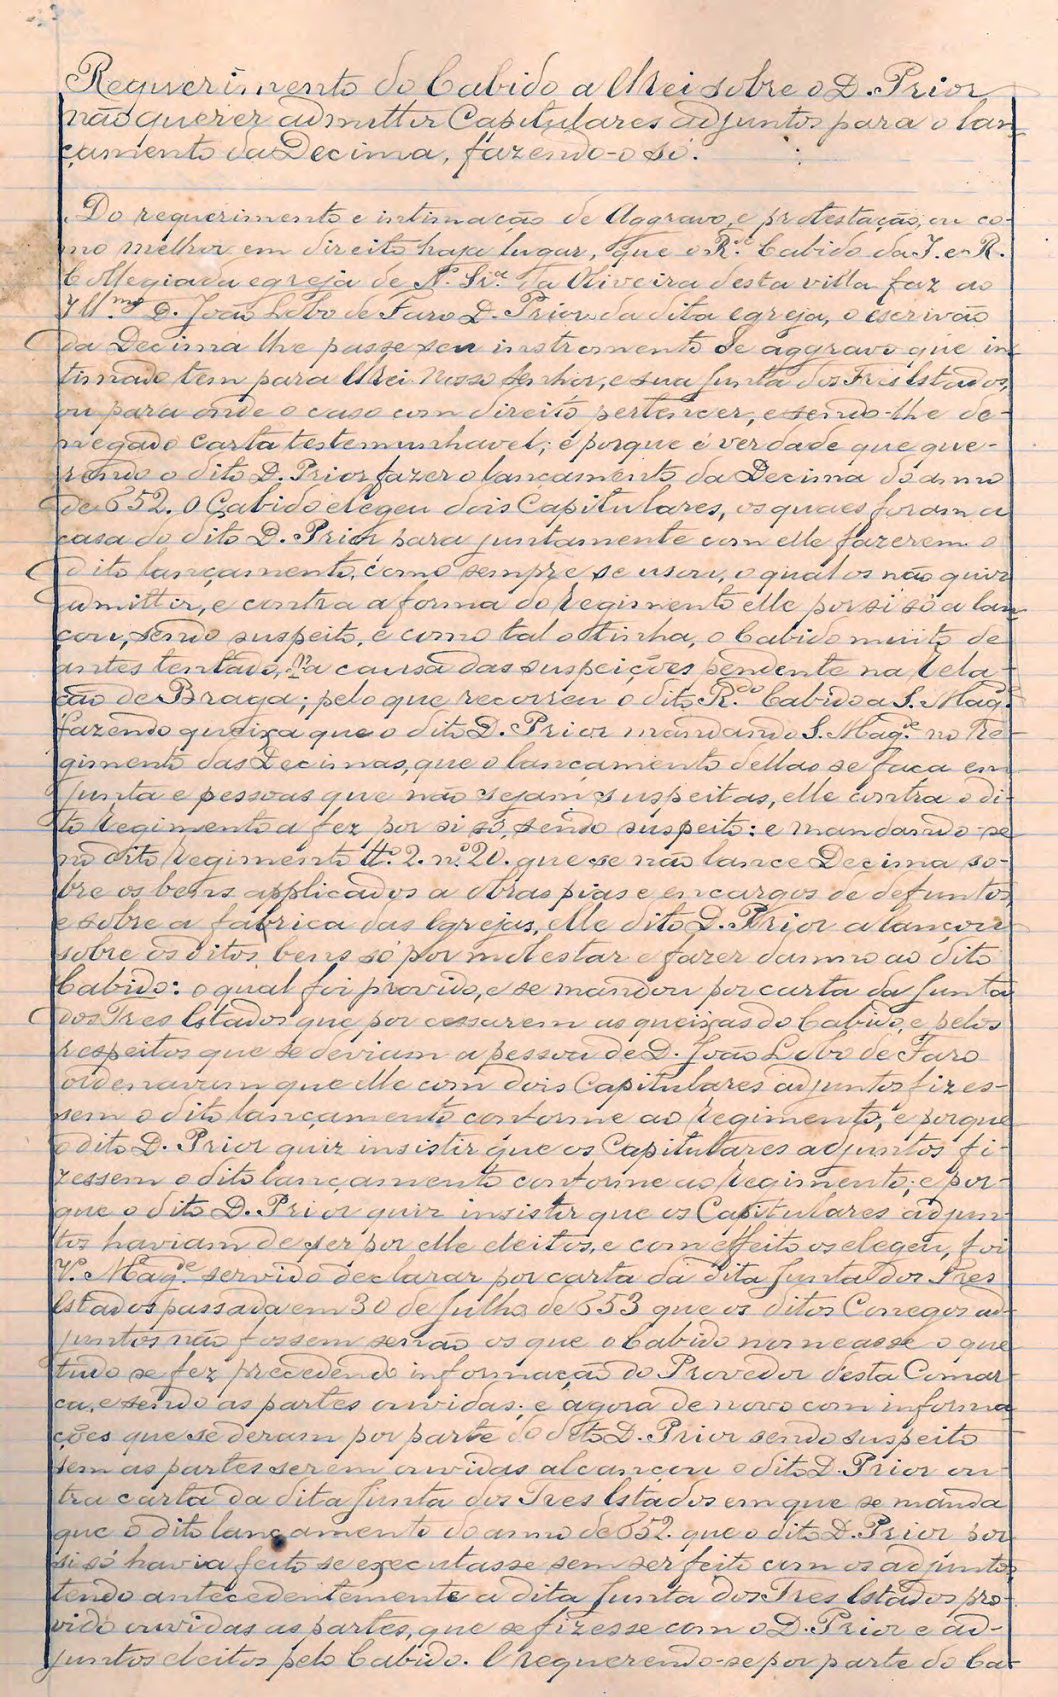 Requerimento do Cabido a ElRei sobre o D. Prior
não querer admittir Capitulares adjuntos para o lan-
çamento da Decima, fazendo-o só.
Do requerimento e intimação de Aggravo, e protestação, ou co-
mo melhor em direito haja lugar, que o R.do Cabido da I. e R.
Collegiada egreja de N. Sr.a da Oliveira desta villa faz ao
Ill.mo D. João Lobo de Faro D. Prior da dita egreja, o escrivão
da Decima lhe passe seu instromento de aggravo que in-
timado tem para ElRei Nosso Senhor, e sua Junta dos Tres Estados,
ou para onde o caso com direito pertencer, e sendo-lhe de-
negado carta testemunhavel; é porque é verdade que que-
rendo o dito D. Prior fazer o lançamento da Decima do anno
de 652. O Cabido elegeu dois Capitulares, os quaes foram a
casa do dito D. Prior para juntamente com elle fazerem o
dito lançamento, como sempre se usou, o qual os não quiz
admittir, e contra a forma do Regimento elle por si só a lan-
çou, sendo suspeito, e como tal o tinha, o Cabido muito de
antes tentado, na causa das suspeições pendente na Rela-
ção de Braga; pelo que recorreu o dito R.do Cabido a S. Mag.e
fazendo queixa que o dito D. Prior mandando S. Mag.e no Re-
gimento das Decimas, que o lançamento dellas se faça em
Junta e pessoas que não sejam suspeitas, elle contra o di-
to Regimento a fez por si só, sendo suspeito: e mandando-se
no dito Regimento tt.o 2. n.o 20. que se não lance Decima so-
bre os bens applicados a obras pias e encargos de defuntos,
e sobre a fabrica das Egrejas, elle dito D. Prior a lançou
sobre os ditos bens só por molestar e fazer damno ao dito
Cabido: o qual foi provido, e se mandou por carta da Junta
dos Tres Estados que por cessarem as queixas do Cabido, e pelos
respeitos que se deviam a pessoa de D. João Lobo de Faro
ordenavam que elle com dois Capitulares adjuntos fizes-
sem o dito lançamento conforme ao Regimento; e porque
o dito D. Prior quiz insistir que os Capitulares adjuntos fi-
zessem o dito lançamento conforme ao Regimento; e por-
que o dito D. Prior quiz insistir que os Capitulares adjun-
tos haviam de ser por elle eleitos, e com effeito os elegeu, foi
V. Mag.e servido declarar por carta da dita Junta dos Tres
Estados passada em 30 de Julho de 653 que os ditos Conegos ad-
juntos não fossem senão os que o Cabido nomeasse o que
tudo se fez precedendo informação do Provedor desta Comar-
ca, e sendo as partes ouvidas; e agora de novo com informa-
ções que se deram por parte do dito D. Prior sendo suspeito
sem as partes serem ouvidas alcançou o dito D. Prior ou-
tra carta da dita Junta dos Tres Estados em que se manda
que o dito lançamento do anno de 652. que o dito D. Prior por
si só havia feito se executasse sem ser feito com os adjuntos,
tendo antecedentemente a dita Junta dos Tres Estados pro-
vido ouvidas as partes, que se fizesse com o D. Prior e ad-
juntos eleitos pelo Cabido. E requerendo-se por parte do Ca-